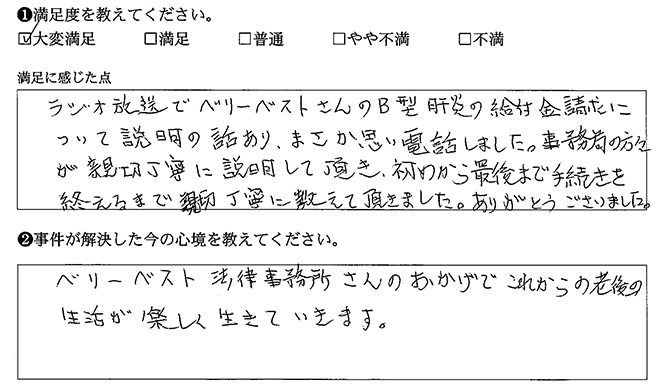 ❶満足度を教えてください。
☑大変満足 □満足 □普通 □やや不満 □不満
満足に感じた点
ラジオ放送でベリーベストさんのB型肝炎の給付金請求に
ついて説明の話あり、まさか思い電話しました。事務局の方々
が親切丁寧に説明して頂き、初めから最後まで手続きを
終えるまで親切丁寧に教えて頂きました。ありがとうございました。
❷事件が解決した今の心境を教えてください。
ベリーベスト法律事務所さんのおかげでこれからの老後の
生活が楽しく生きていきます。